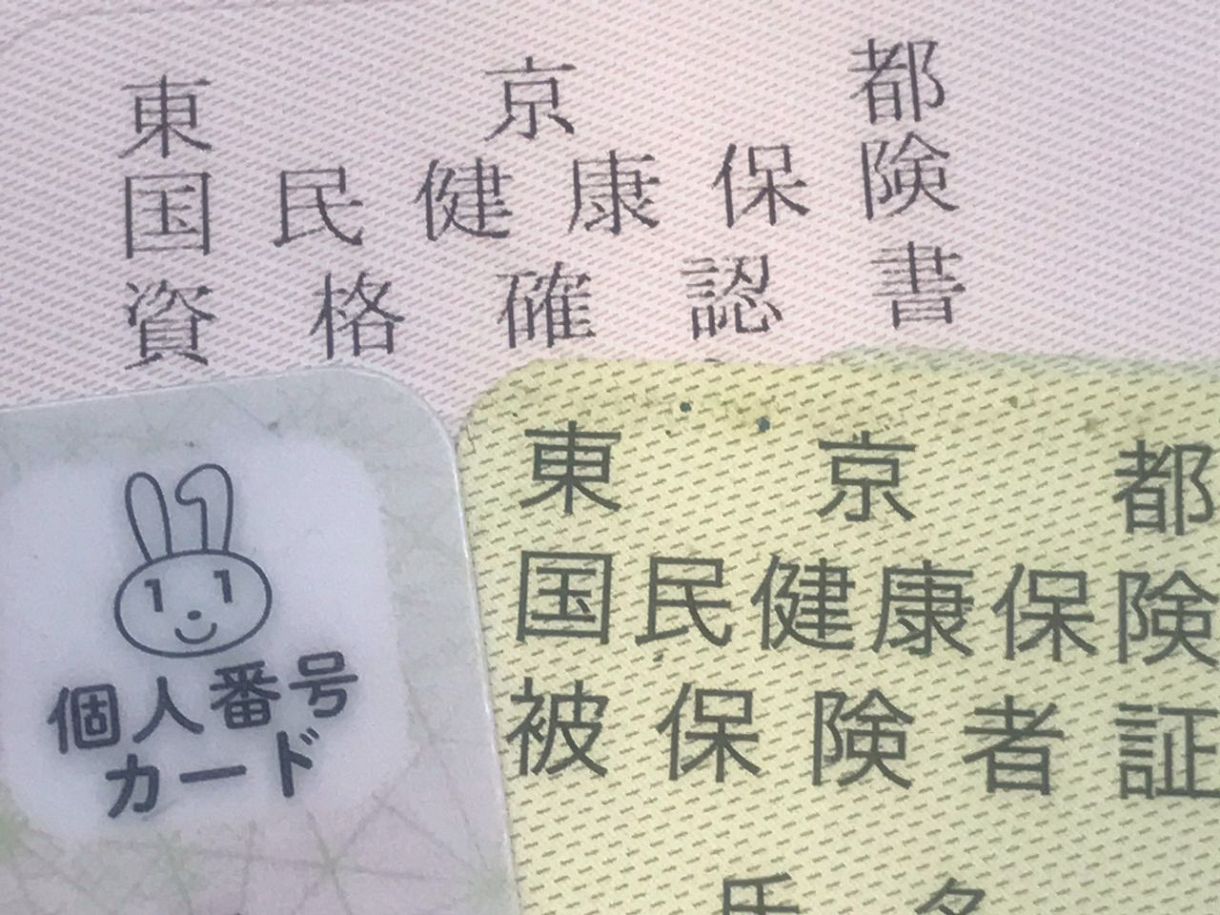 東京都
国民健康保険
資格確認書
個人番号
カード
東京都
国民健康保険
被保険者証
氏名